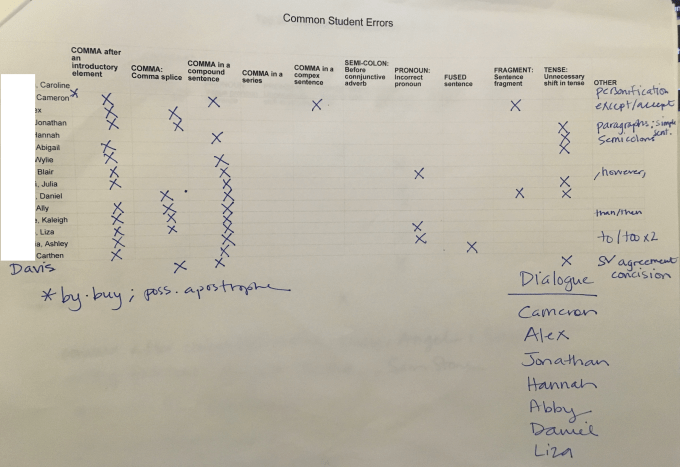 Common Student Errors
COMMA after an introductory element
COMMA: Comma splice
COMMA in a compound sentence
COMMA in a series
COMMA in a compex sentence
SEMI-COLON: Before connjunctive adverb
PRONOUN: Incorrect pronoun
FUSED sentence
FRAGMENT: Sentence fragment
TENSE: Unnecessary shift in tense
OTHER
, Caroline
Cameron* X X X X personification
ex X X except/accept
Jonathan X X X paragraphs; simple sent.
Hannah X X semicolons
Abigail X X
Wylie X X
Blair X X X , however,
, Julia X X X
, Daniel X X X X
Ally X X X than/then
e, Kaleigh X X X
, Liza X X X X
a, Ashley X X X X to/too x2
Carthen X X
Davis X X X SV agreement concision
* by-buy; poss. apostrophe
Dialogue
Cameron
Alex
Jonathan
Hannah
Abby
Daniel
Liza